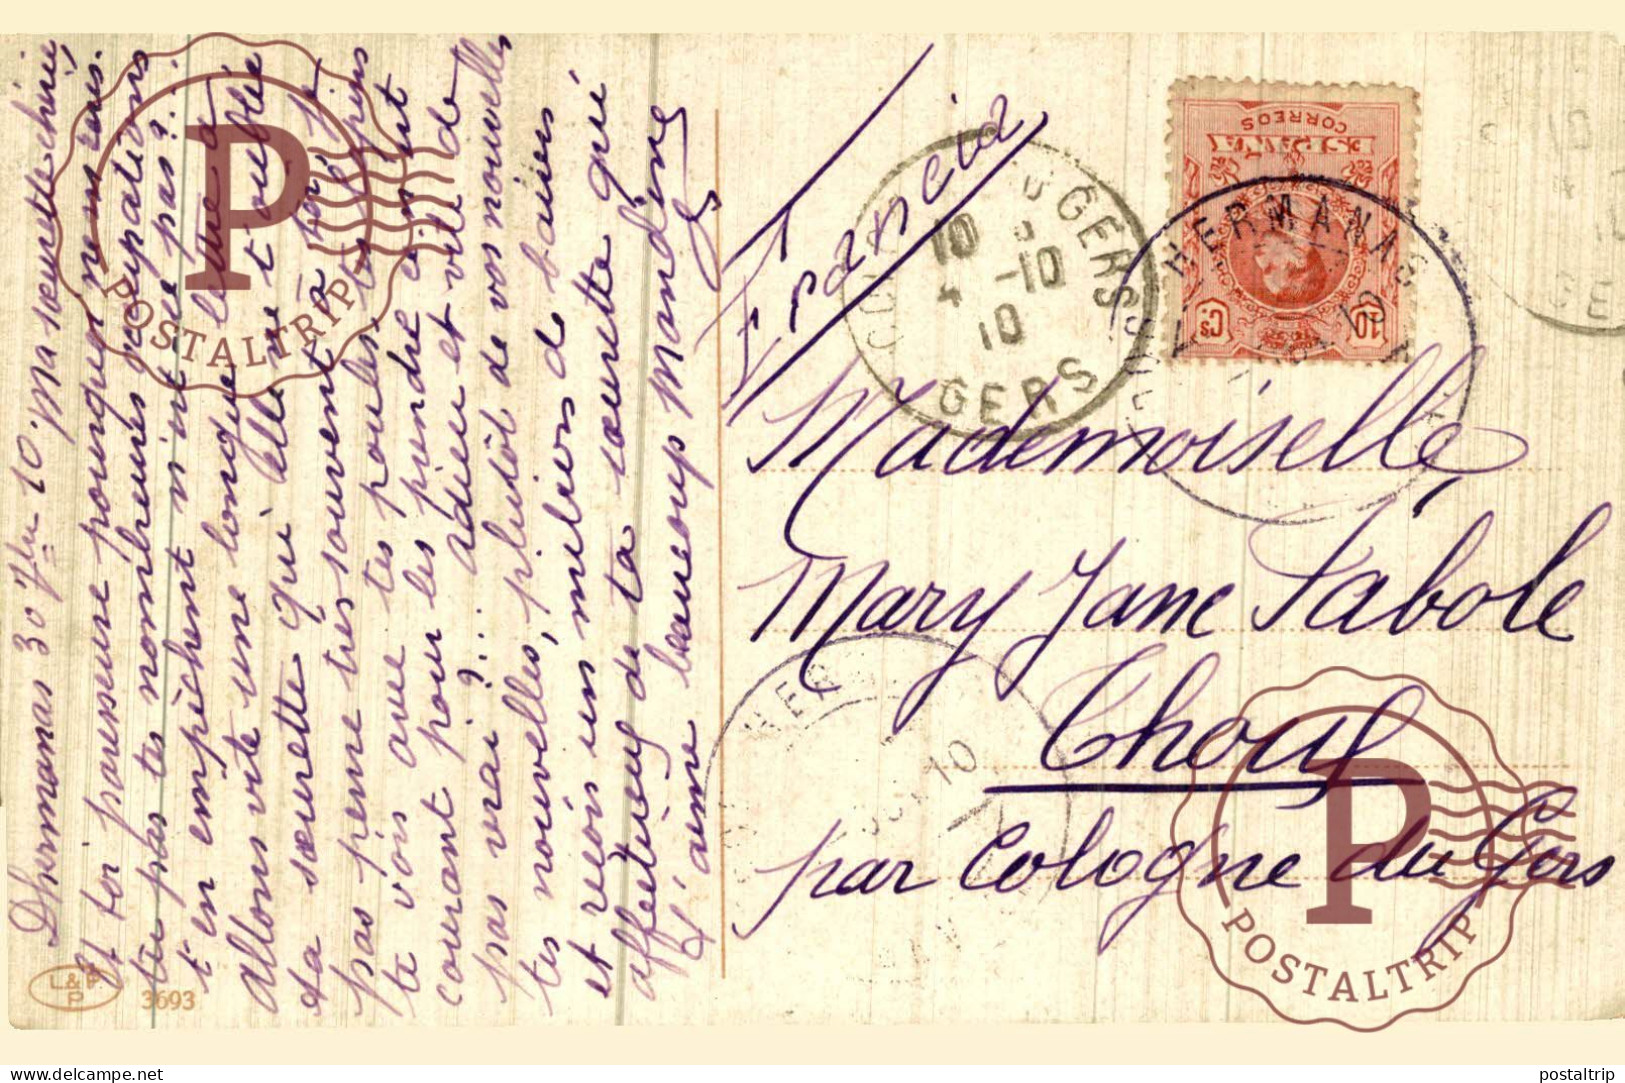 Dhermanas 30 7bre 10. Ma sœurette chérie
Et toi paresseuse pourquoi ne m'écris
tu pas tes nombreuses occupations
t'en empêchent n'est ce pas?...
Allons vite une longue lettre à
ta sœurette qui elle ne t'oublie
pas pense très souvent à toi, je
te vois avec tes poules, tes lapins
courant pour les prendre c'est
pas vrai?... adieu et vite de
tes nouvelles, plutôt de vos nouvelles
et reçois un million de baisers
affectueux de ta sœurette qui
t'aime beaucoup Mandine
L & P
P
3693
Francia
Mademoiselle
Mary Jane Sabole
Thoux
par Cologne du Gers
ESPAÑA
CORREOS
10 Cs
HERMANAS
GERS
10
4 -10
10
GERS
10
P
POSTALTRIP
P
POSTALTRIP
delcampe.net
postaltrip